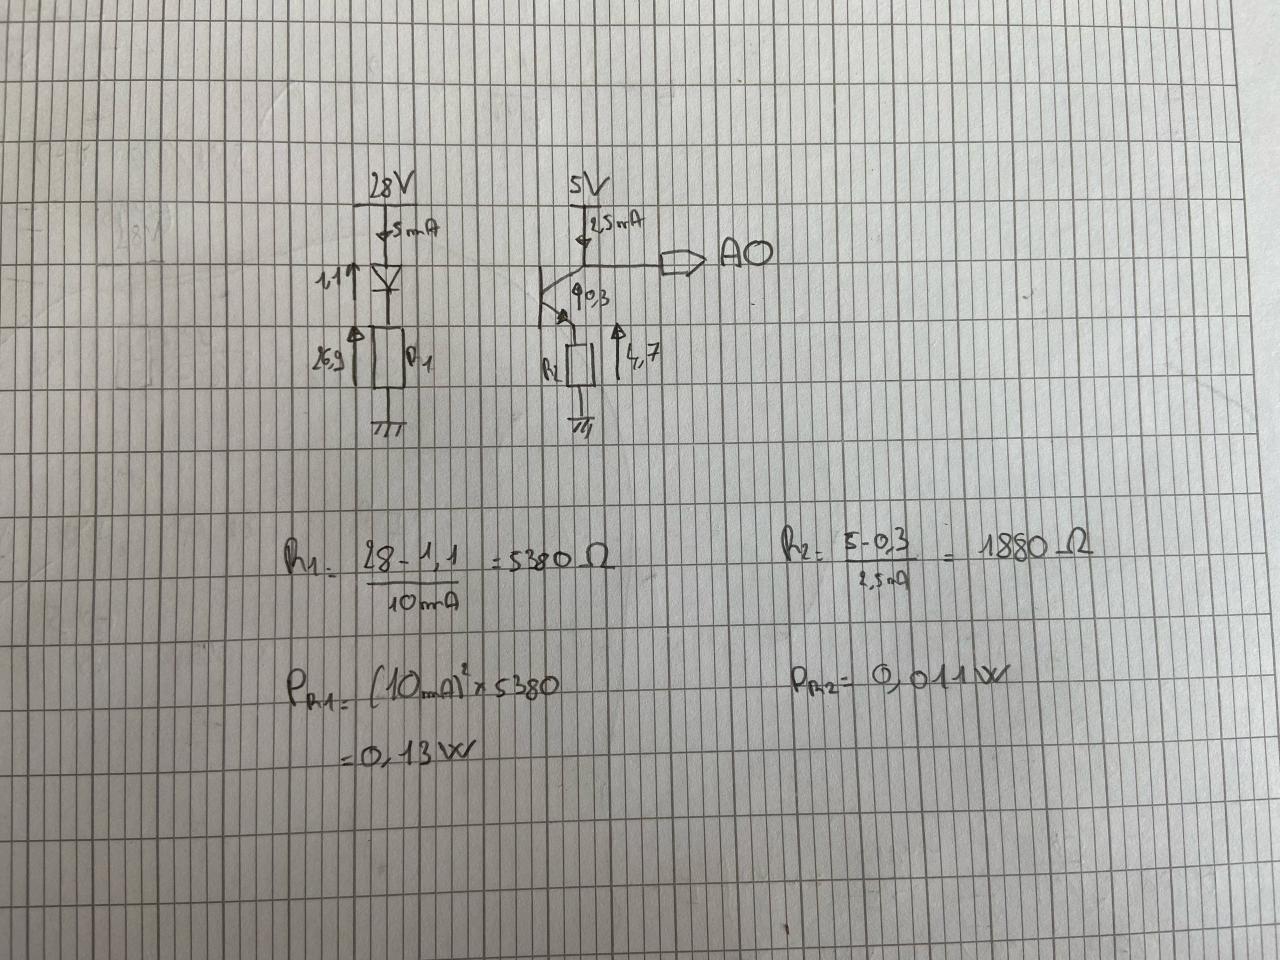 28V
5V
5mA
2,5mA
AO
1,1
0,3
26,9
R1
R2
4,7
R1 = 28 - 1,1 / 10mA = 5380 Ω
R2 = 5 - 0,3 / 2,5mA = 1880 Ω
PR1 = (10mA)² × 5380
PR2 = 0,011W
= 0,13W